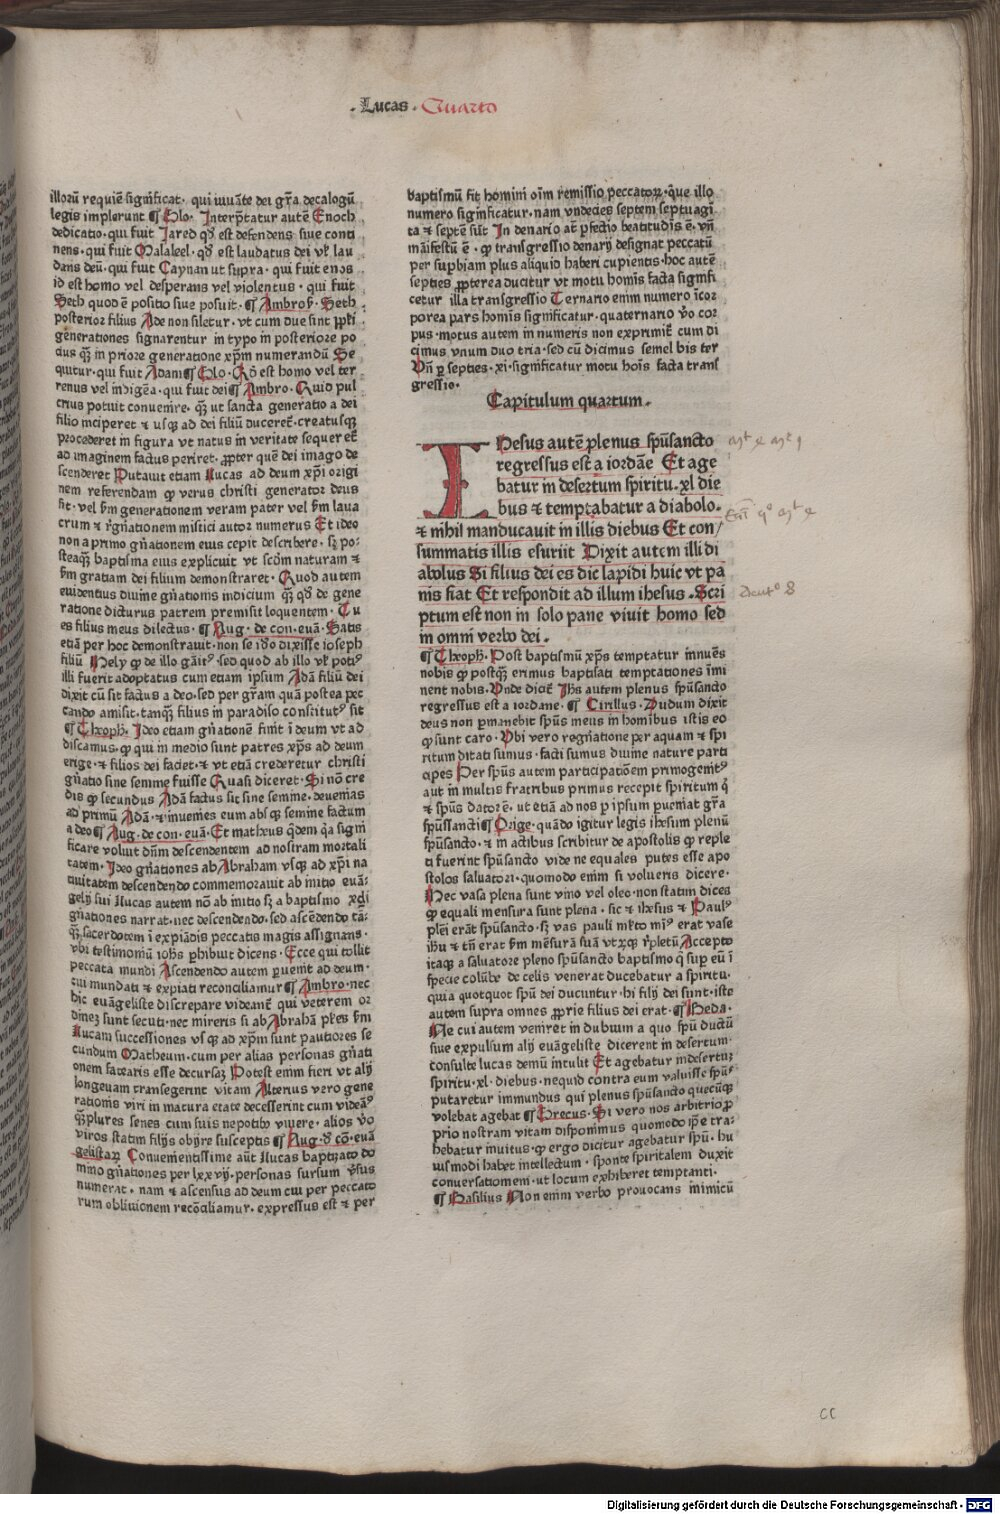 . Lucas . Quarto
illoꝝ requiē significat · qui iuuāte dei gr̄a decalogū
legis implerunt ¶ Glo · Interp̄tatur autē Enoch
dedicatio · qui fuit Jared qď est defendens siue conti
nens · qui fuit Malaleel · qď est laudatus dei vł lau
dans deū · qui fuit Caynan ut supra · qui fuit enos
id est homo vel desperans vel violentus · qui fuit
Seth quod ē positio siue posuit · ¶ Ambros̄ · Seth
posterior filius Ade non siletur · vt cum due sint pp̄li
generationes signarentur in typo in posteriore po
cius qꝫ in priore generatione xp̄m numerandū Se
quitur · qui fuit Adam ¶ Glo · Qď est homo vel ter
renus vel indigēa · qui fuit dei ¶ Ambro · Quid pul
crius potuit conuenire · qꝫ ut sancta generatio a dei
filio inciperet ⁊ usqꝫ ad dei filiū duceret̄ · creatusqꝫ
procederet in figura vt natus in veritate sequeret̄
ad imaginem factus periret · ꝓpter quē dei imago de
scenderet Putauit etiam Lucas ad deum xp̄i origi
nem referendam ꝙ verus christi generator deus
sit · vel s̄m generationem veram pater vel s̄m laua
crum ⁊ r̄gn̄ationem mistici autor numerus Et ideo
non a primo gn̄ationem eius cepit describere · sꝫ po-
steaqꝫ baptisma eius explicuit vt scōm naturam ⁊
s̄m gratiam dei filium demonstraret · Quod autem
euidentius diuine gn̄ationis indicium qꝫ qď de gene
ratione dicturus patrem premisit loquentem · Tu
es filius meus dilectus · ¶ Aug · de con · euā · Satis
etiā per hoc demonstrauit · non se iďo dixisse ioseph
filiū Hely ꝙ de illo gn̄itꝰ · sed quod ab illo vł potiꝰ
illi fuerit adoptatus cum etiam ipsum Adā filiū dei
dixit cū sit factus a deo · sed per gr̄am quā postea pec
cando amisit · tanqꝫ filius in paradiso constitutꝰ sit
¶ Theoph̄ · Ideo etiam gn̄ationē finit ī deum vt ad
discamus · ꝙ qui in medio sunt patres xp̄s ad deum
erige · ⁊ filios dei faciet · ⁊ vt etiā crederetur christi
gn̄atio sine semine fuisse Quasi diceret · Si nō cre
dis ꝙ secundus Adā factus sit sine semine · deuenias
ad primū Adā · ⁊ inuenies eum absqꝫ semine factum
a deo ¶ Aug · de con · euā · Et matheus qͥdem qͥa signi
ficare voluit dn̄m descendentem ad nostram mortali
tatem · Ideo gn̄ationes ab Abraham vsqꝫ ad xp̄i na
tiuitatem descendendo commemorauit ab initio euā-
gelij sui Lucas autem nō ab initio sꝫ a baptismo xp̄i
gn̄ationes narrat · nec descendendo · sed ascēdendo tā-
qꝫ sacerdotem ī expiādis peccatis magis assignans ·
vbi testimoniū ioh̄s ꝑhibuit dicens · Ecce qui tollit
peccata mundi Ascendendo autem ꝑuenit ad deum ·
cui mundati ⁊ expiati reconciliamur ¶ Ambro · nec
hic euāgeliste discrepare videant̄ qui veterem or
dinez sunt secuti · nec mireris si ab Abrahā pl̄es s̄m
Lucam successiones vsqꝫ ad xp̄m sunt pautiores se
cundum Matheum · cum per alias personas gn̄ati
onem facearis esse decursaꝫ Potest enim fieri vt alij
longeuam transegerint vitam Alterius vero gene
rationis viri in matura etate decesserint cum videāꝰ
qꝫplures senes cum suis nepotibꝰ viuere · alios v̄o
viros statim filijs obijre susceptis ¶ Aug · ď cō · euā
gelistaꝝ Conuenientissime aūt Lucas baptizato do
mino gn̄ationes per lxxvij · personas sursum v̄sus
numerat · nam ⁊ ascensus ad deum cui per peccato
rum obliuionem recōciliamur · expressus est ⁊ per
baptismū fit homini oīm remissio peccatoꝝ · que illo
numero significatur · nam vndecies septem septuagī
ta ⁊ septē sūt In denario at̄ ꝑfectio beatitudīs ē · vn̄
māifestū ē · ꝙ transgressio denarij designat peccatū
per supbiam plus aliquid haberi cupientis · hoc autē
septies ꝓpterea ducitur vt motu homīs facta signifi
cetur illa transgressio Ternario enim numero īcor
porea pars homīs significatur · quaternario v̄o cor
pus · motus autem in numeris non exprimit̄ cum di
cimus vnum duo tria · sed cū dicimus semel bis ter
Vn̄ ꝑ septies · xi · significatur motu hoīs facta transf
gressio ·
Capitulum quartum ·
IHesus autē plenus spū sancto
regressus est a iordāe Et age
batur in desertum spiritu · xl die
bus ⁊ temptabatur a diabolo ·
⁊ nihil manducauit in illis diebus Et con/
summatis illis esuriit Dixit autem illi di
abolus Si filius dei es dic lapidi huic vt pa
nis fiat Et respondit ad illum ihesus · Scri
ptum est non in solo pane viuit homo sed
in omni verbo dei ·
¶ Theoph̄ · Post baptismū xp̄s temptatur innuēs
nobis ꝙ postqꝫ erimus baptisati temptationes īmi
nent nobis · Vnde dicit̄ Ih̄s autem plenus spū sancto
regressus est a iordane · ¶ Cirillus · Dudum dixit
deus non ꝑmanebit spūs meus in hominibus istis eo
ꝙ sunt caro · Vbi vero regn̄atione per aquam ⁊ spi
ritum ditati sumus · facti sumus diuine nature parti
cipes Per spūs autem participationem primogenitꝰ
aut in multis fratribus primus recepit spiritum qͥ
⁊ spūs dator ē · ut etiā ad nos ꝑ ipsum ꝑueniat gr̄a
spūs sancti ¶ Orige · quādo igitur legis ihesum plenū
spū sancto · ⁊ in actibus scribitur de apostolis ꝙ reple
ti fuerint spū sancto vide ne equales putes esse apo
stolos saluatori · quomodo enim si volueris dicere ·
Hec vasa plena sunt vino vel oleo · non statim dices
ꝙ equali mensura sunt plena · sic ⁊ ihesus ⁊ Paulꝰ
plēi erāt spū sancto · sꝫ vas pauli ml̄to miꝰ erat vase
ihū ⁊ tn̄ erat s̄m mēsurā suā vtrūqꝫ r̄pletū Accepto
itaqꝫ a saluatore pleno spū sancto baptismo qͥ sup eū ī
specie colūbe de celis venerat ducebatur a spiritu ·
quia quotquot spū dei ducuntur · hi filij dei sunt · iste
autem supra omnes ꝓprie filius dei erat · ¶ Beda ·
Ne cui autem veniret in dubium a quo spū ductū
siue expulsum alij euāgeliste dicerent in desertum ·
consulte lucas demū intulit Et agebatur in desertuꝫ
spiritu · xl · diebus · nequid contra eum valuisse spūs
putaretur immundus qui plenus spū sancto quecūqꝫ
volebat agebat ¶ Grecus · Si vero nos arbitrio ꝓ
prio nostram vitam disponimus quomodo ip̄e tra-
hebatur inuitus · ꝙ ergo dicitur agebatur spū · hu
iusmodi habet intellectum · sponte spiritalem duxit
conuersationem · ut locum exhiberet temptanti ·
¶ Basilius Non enim verbo prouocans inimicū
CC
Digitalisierung gefördert durch die Deutsche Forschungsgemeinschaft - DFG